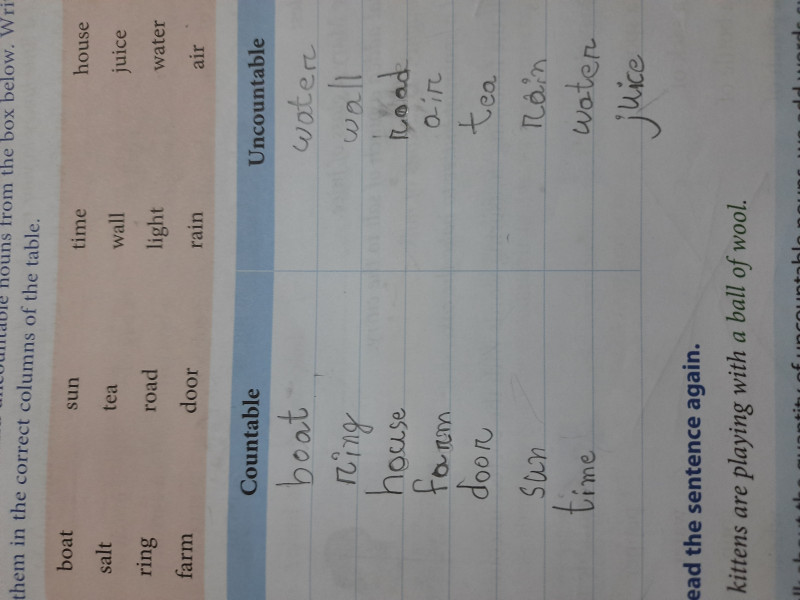 uncountable nouns from the box below. Wri
them in the correct columns of the table.
boat sun time house
salt tea wall juice
ring road light water
farm door rain air
Countable Uncountable
boat water
ring wall
house road
farm air
door tea
sun rain
time water
juice
ead the sentence again.
kittens are playing with a ball of wool.